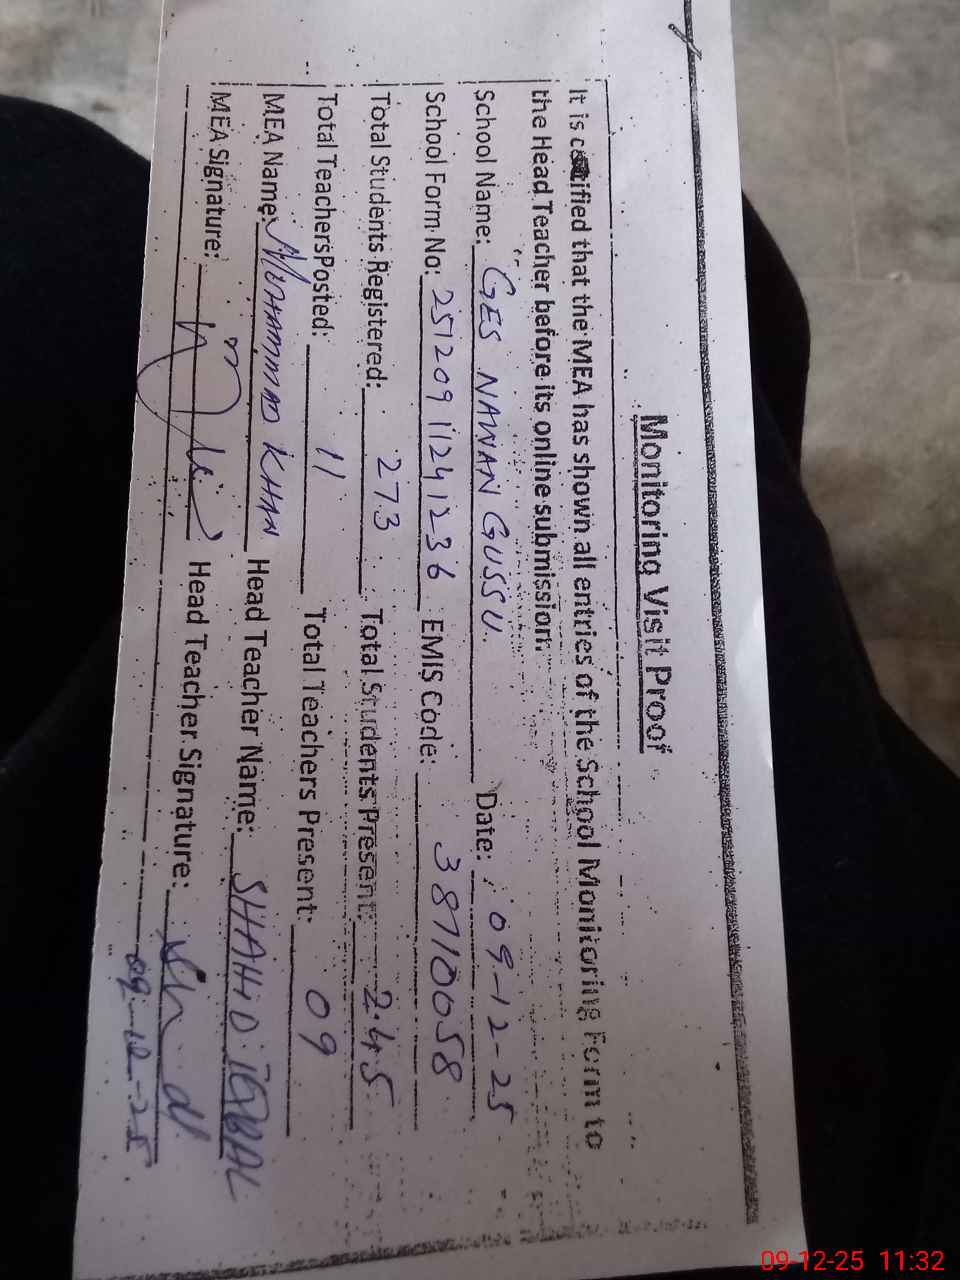 Monitoring Visit Proof
It is certified that the MEA has shown all entries of the School Monitoring Form to
the Head Teacher before its online submission.
School Name: GES NAWAN GUSSU. Date: 09-12-25
School Form No: 25120911241236 EMIS Code: 38710058
Total Students Registered: 273 Total Students Present: 245
Total Teachers Posted: 11 Total Teachers Present: 09
MEA Name: MUHAMMAD KHAN Head Teacher Name: SHAHID IQBAL
MEA Signature: Head Teacher Signature:
09-12-25
09-12-25 11:32